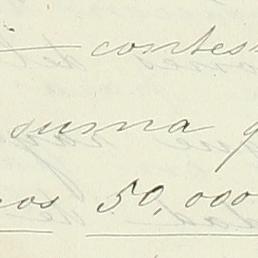 contes
suma q
nos 50,000